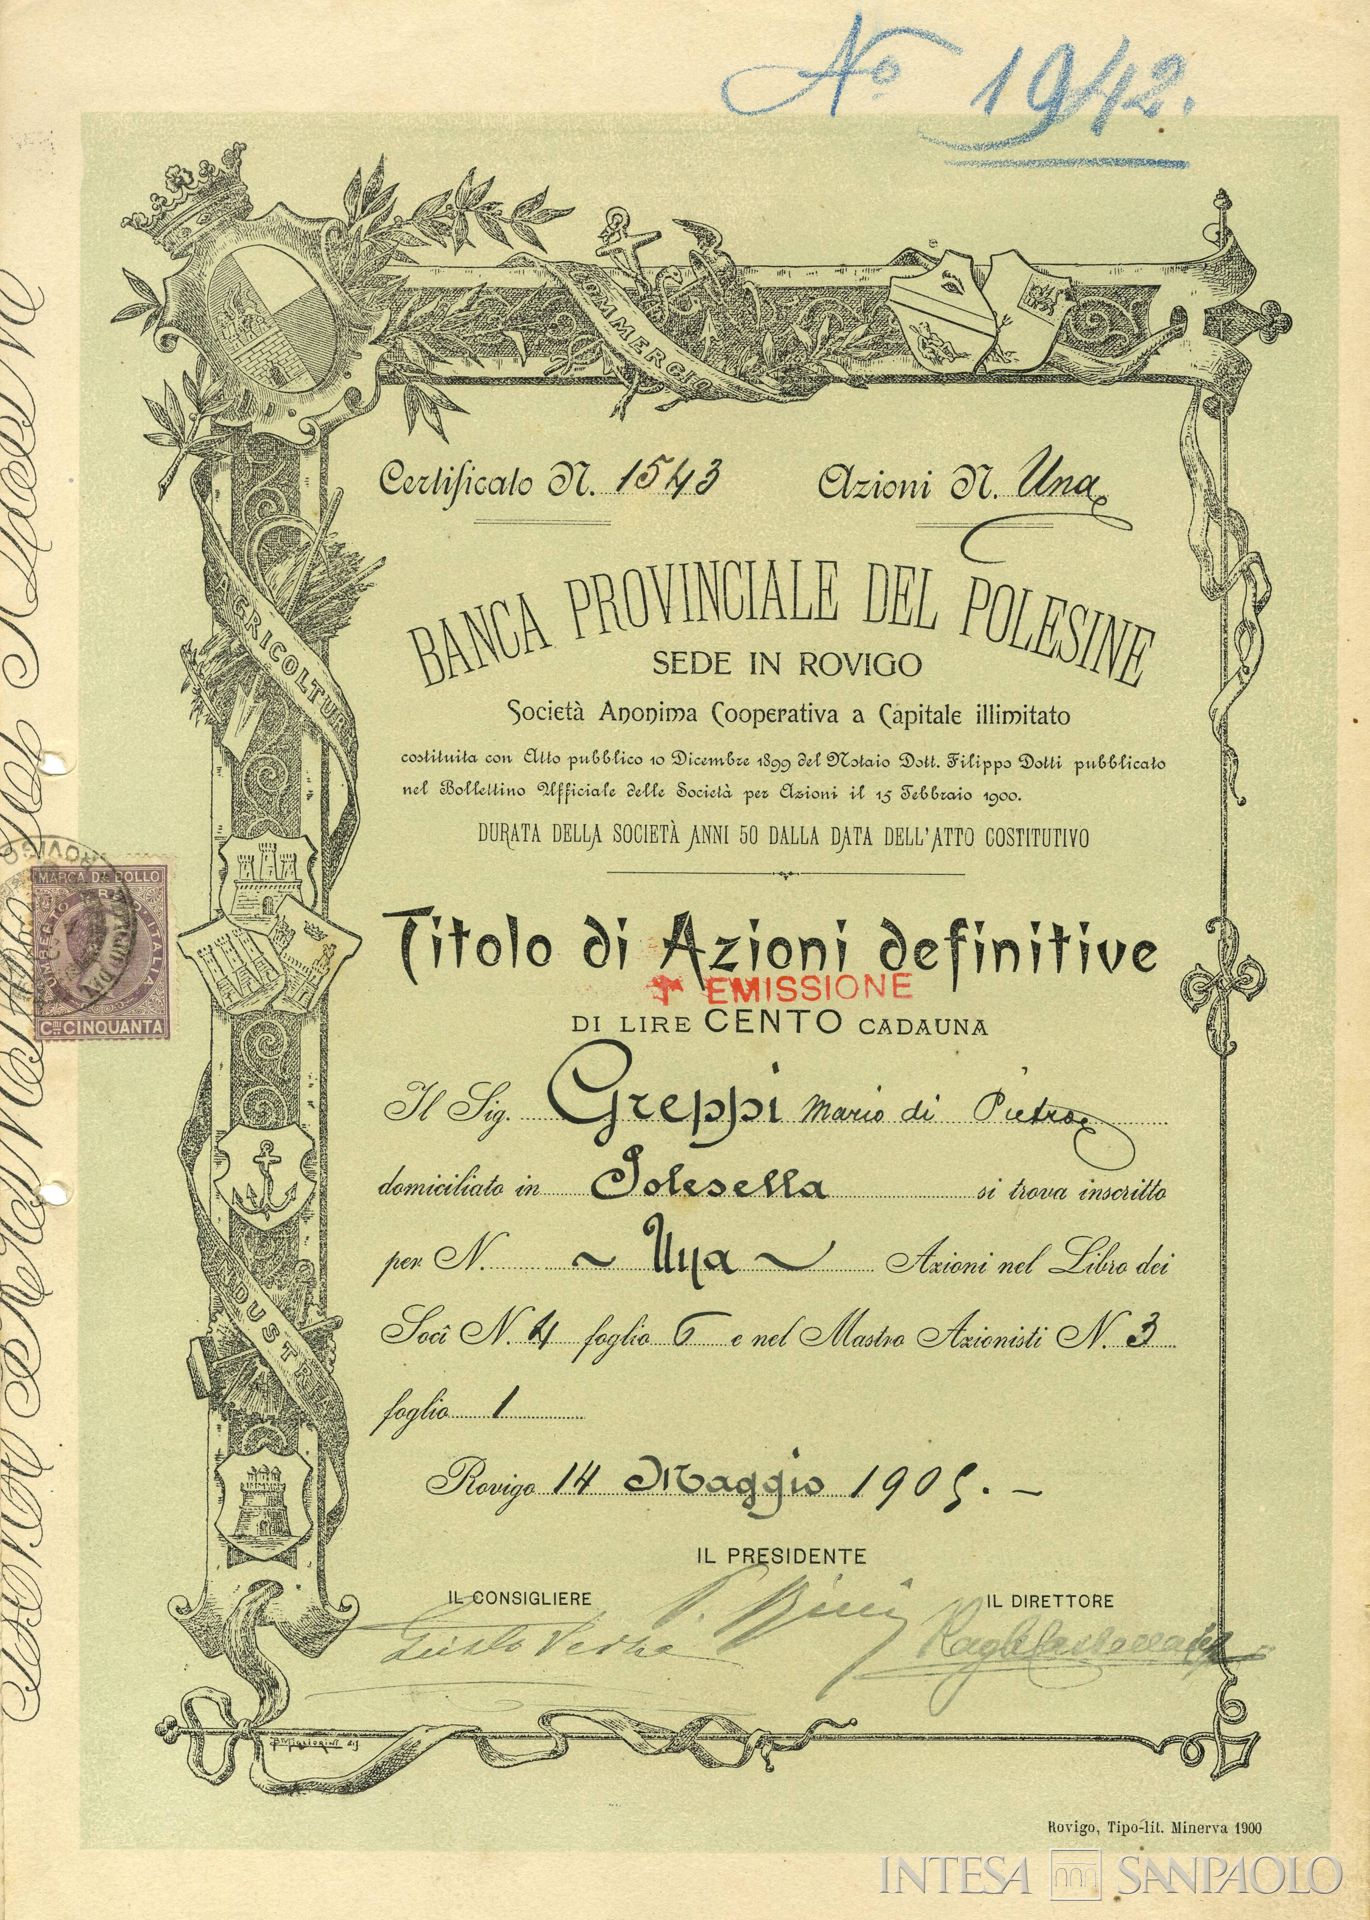 No 1942.
COMMERCIO
Certificato N. 1543 Azioni N. Una
AGRICOLTURA
BANCA PROVINCIALE DEL POLESINE
SEDE IN ROVIGO
Società Anonima Cooperativa a Capitale illimitato
costituita con Atto pubblico 10 Dicembre 1899 del Notaio Dott. Filippo Dotti pubblicato
nel Bollettino Ufficiale delle Società per Azioni il 15 Febbraio 1900.
DURATA DELLA SOCIETÀ ANNI 50 DALLA DATA DELL'ATTO COSTITUTIVO
MARCA DA BOLLO
CMI CINQUANTA
Titolo di Azioni definitive
EMISSIONE
DI LIRE CENTO CADAUNA
Il Sig. Greppi Mario di Pietro
domiciliato in Polesella si trova inscritto
per N. ~ Una ~ Azioni nel Libro dei
Soci N. 4 foglio 6 e nel Mastro Azionisti N. 3
INDUSTRIA
foglio 1
Rovigo 14 Maggio 1905. -
IL PRESIDENTE
IL CONSIGLIERE IL DIRETTORE
Rovigo, Tipo-lit. Minerva 1900
INTESA SANPAOLO